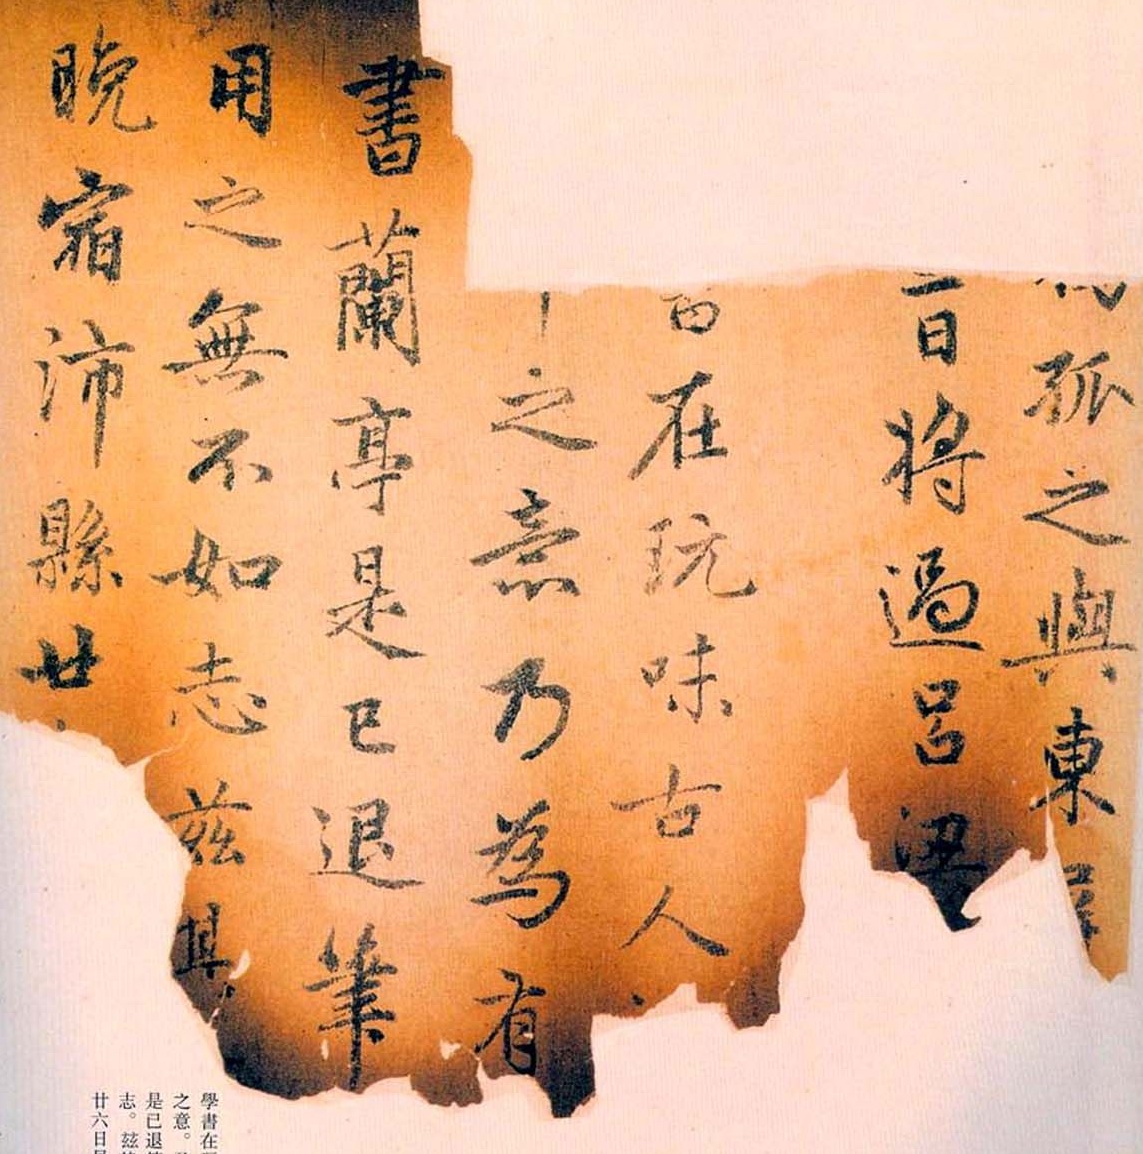 孤之與東
日將過呂梁
在玩味古人
之意乃為有
書蘭亭是已退筆
用之無不如志茲其
晚宿沛縣廿
學書在
之意。
是已退
志。茲
廿六日